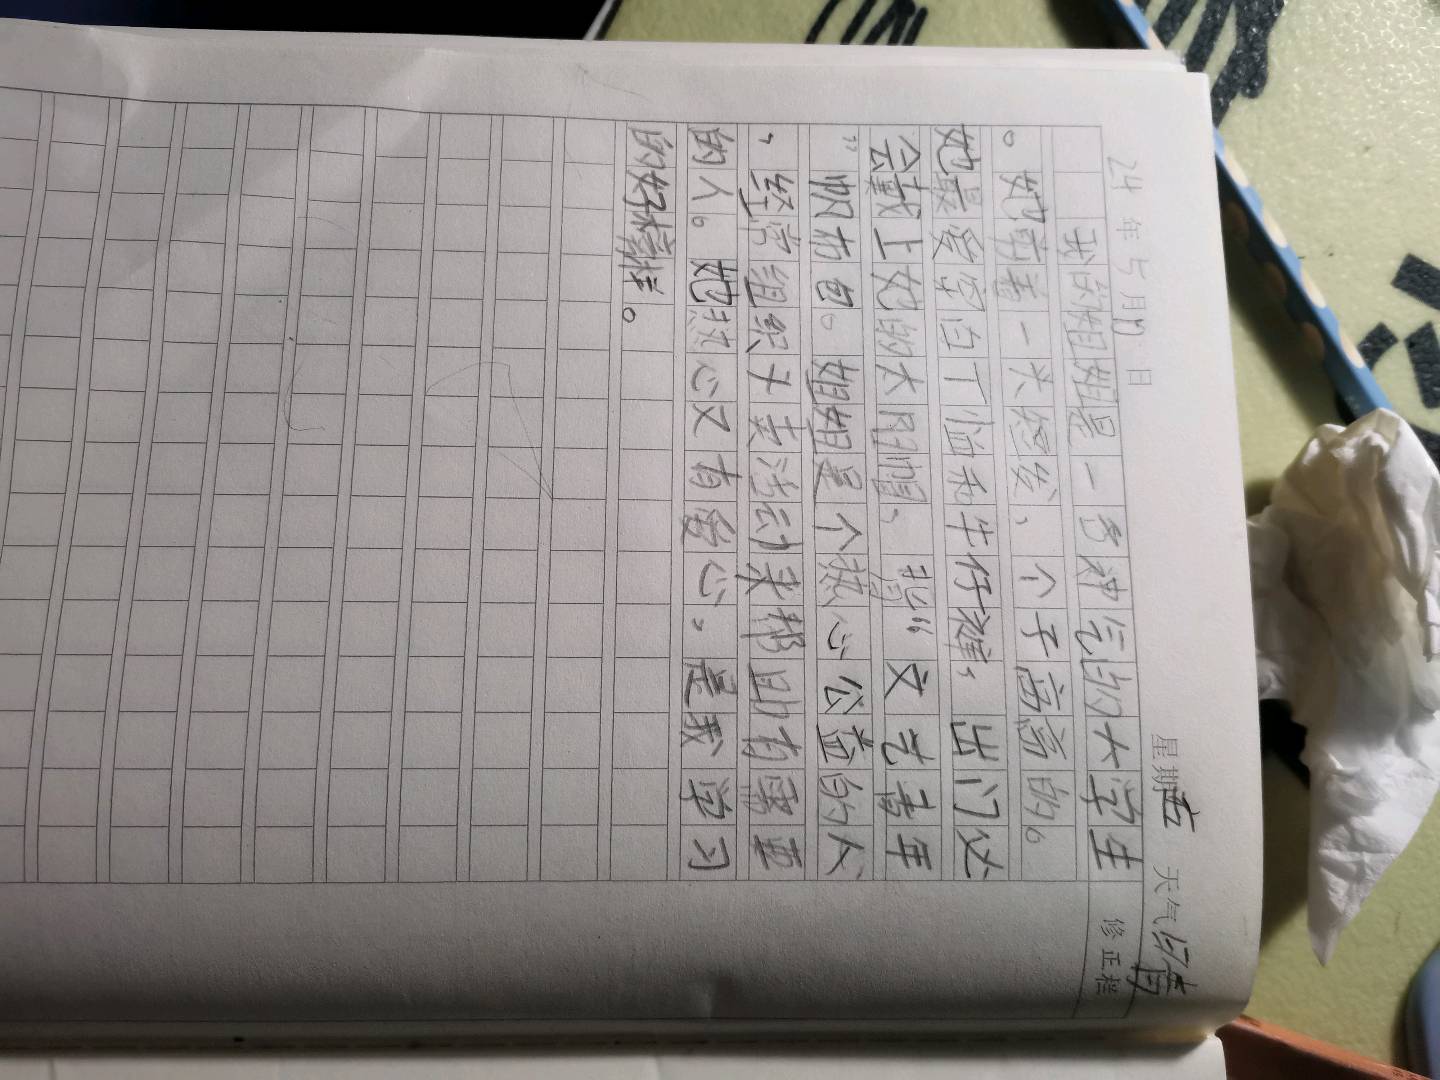 24年5月17日 星期五 天气晴
修正栏
我的姐姐是一名神气的大学生
。她剪着一头短发,个子高高的。
她最爱穿白丁恤和牛仔裤,出门处
会戴上她的大阳帽,“文艺青年
”帆布包。姐姐是个热心公益的人
,经常组织大类活动来帮助有需要
的人。她热心又有爱心。是我学习
的好榜样。